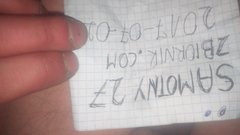 SAMOTNY 27
ZBIORNIK.COM
2017-07-02